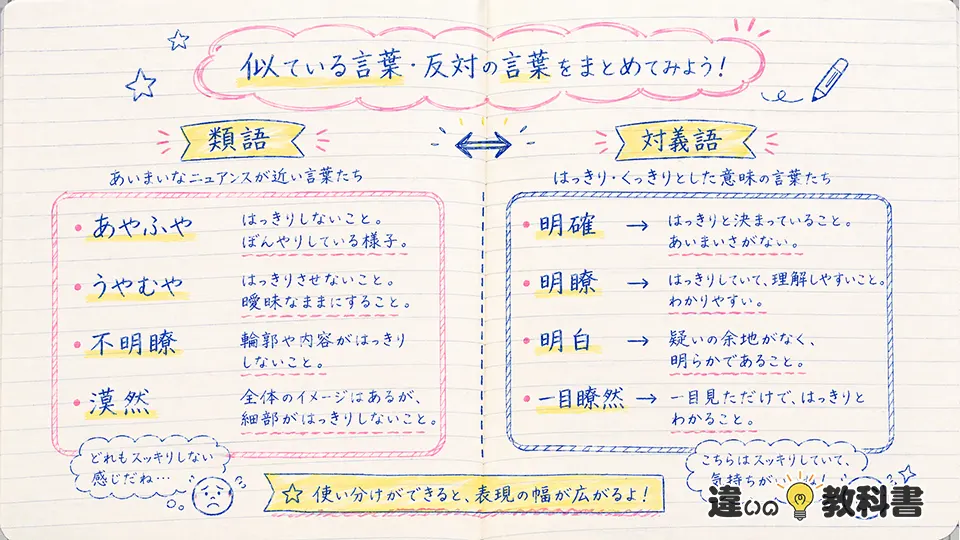 似ている言葉・反対の言葉をまとめてみよう!
類語
あいまいなニュアンスが近い言葉たち
あやふや
はっきりしないこと。
ぼんやりしている様子。
うやむや
はっきりさせないこと。
曖昧なままにすること。
不明瞭
輪郭や内容がはっきり
しないこと。
漠然
全体のイメージはあるが、
細部がはっきりしないこと。
どれもスッキリしない
感じだね…
対義語
はっきり・くっきりとした意味の言葉たち
明確 →
はっきりと決まっていること。
あいまいさがない。
明瞭 →
はっきりしていて、理解しやすいこと。
わかりやすい。
明白 →
疑いの余地がなく、
明らかであること。
一目瞭然 →
一目見ただけで、はっきりと
わかること。
こちらはスッキリしていて、
気持ちが
使い分けができると、表現の幅が広がるよ!
違いの教科書